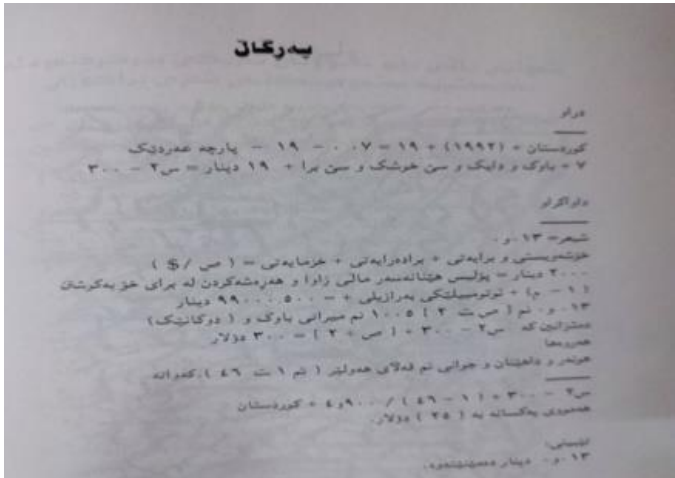 بەرگان
دراو
کوردستان + (١٩٩٢) + ١٩ = ٠٠٧ - ١٩ - پارچە عەردێک
٧ + باوک و دایک و سێ خوشک و سێ برا + ١٩ دینار = س٢ - ٣٠٠
داواکراو
شیعر= ١٣.و.٠
خۆشەویستی و برایەتی + برادەرایەتی + خزمایەتی = ( ص /$ )
٢٠٠٠ دینار = پۆلیس هێنانەسەر ماڵی زاوا و هەڕەشەکردن لە برای خۆ بەکوشتن
( ١ - م) + ئوتومبیلێکی بەرازیلی + = ٥٠٠...٩٩٠ دینار
١٣.و.٠ نم [ ص ت ٢ ] ١٠٠٥ نم میراتی باوک و ( دوکانێک)
دەتوانین کە س٢ - ٣٠٠ + [ ص + ٢ ] = ٣٠٠ دۆلار
هەروەها
هونەر و داهێنان و جوانی نم قەڵای هەولێر ( نم ١ ت ٤٦ ).کەواتە
س٢ - ٣٠٠ + ( ١ - ٤٦ ) / ٩٠٠و٤ + کوردستان
هەمووی یەکسانە بە ( ٢٥ ) دۆلار.
تێبینی:
١٣.و.٠ دینار دەمێنێتەوە.